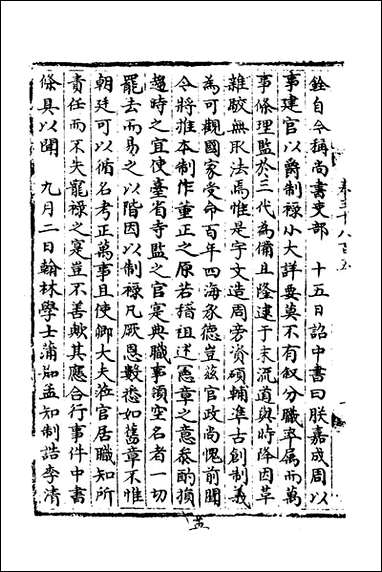 銓自今稱尚書吏部　十五日詔中書曰朕嘉成周以
事建官以爵制祿小大詳要莫不有叙分職率屬而萬
事條理監於三代為備且隆逮于末流道與時降因革
雜駮無取法焉惟是宇文造周旁資碩輔準古創制義
為可觀國家受命百年四海承德豈兹官政尚愧前聞
今將推本制作董正之原若稽祖述憲章之意叅酌損
趨時之宜使臺省寺監之官寔典職事領空名者一切
罷去而易之以階因以制祿凡厥恩數悉如舊章不惟
朝廷可以循名考正萬事且使卿大夫蒞官居職知所
責任而不失寵祿之寔豈不善歟其應合行事件中書
條具以聞　九月二日翰林學士蒲宗孟知制誥李清